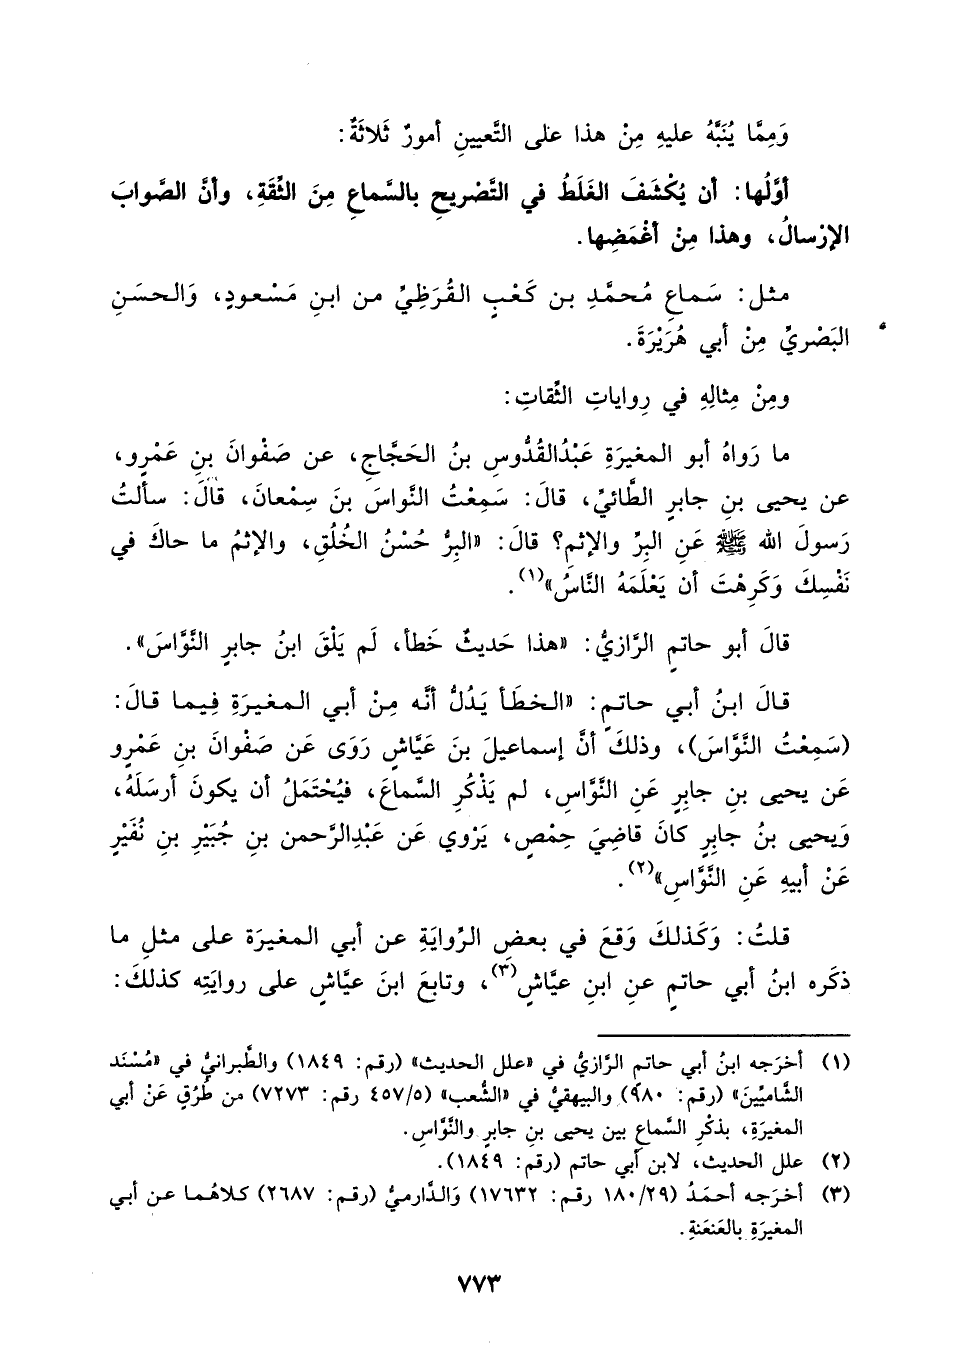 وَمِمَّا يُنَبَّهُ عليهِ مِنْ هذا على التَّعيينِ أمورٌ ثَلاثَةٌ:
أوَّلُها: أن يُكْشَفَ الغَلَطُ في التَّصْريحِ بالسَّماعِ مِنَ الثِّقَةِ، وأنَّ الصَّوابَ
الإرْسالُ، وهذا مِنْ أغْمَضِها.
مثل: سَماعِ مُحمَّدِ بن كَعْبٍ القُرَظِيِّ من ابنِ مَسْعودٍ، وَالحسَنِ
البَصْريِّ مِنْ أبي هُرَيْرَةَ.
ومِنْ مِثالِهِ في رِواياتِ الثِّقاتِ:
ما رَواهُ أبو المغيرَةِ عَبْدُالقُدُّوسِ بنُ الحَجَّاجِ، عن صَفْوانَ بنِ عَمْرٍو،
عن يحيى بنِ جابرٍ الطَّائيِّ، قالَ: سَمِعْتُ النَّواسَ بنَ سِمْعانَ، قالَ: سألتُ
رَسولَ الله ﷺ عَنِ البِرِّ والإثمِ؟ قالَ: «البِرُّ حُسْنُ الخُلُقِ، والإثمُ ما حاكَ في
نَفْسِكَ وَكَرِهْتَ أن يَعْلَمَهُ النَّاسُ»(١).
قالَ أبو حاتمٍ الرَّازيُّ: «هذا حَديثٌ خَطأ، لَم يَلْقَ ابنُ جابرٍ النَّوَّاسَ».
قالَ ابنُ أبي حاتمٍ: «الخطَأ يَدُلُّ أنَّه مِنْ أبي المغيرَةِ فِيما قالَ:
(سَمِعْتُ النَّوَّاسَ)، وذلكَ أنَّ إسماعيلَ بنَ عَيَّاشٍ رَوَى عَن صَفْوانَ بنِ عَمْرٍو
عَن يحيى بنِ جابِرٍ عَنِ النَّوَّاسِ، لم يَذْكُرِ السَّماعَ، فيُحْتَمَلُ أن يكونَ أرسَلَهُ،
وَيحيى بنُ جابرٍ كانَ قاضِيَ حِمْصٍ، يَرْوي عَن عَبْدِالرَّحمن بنِ جُبَيْرِ بنِ نُفَيْرٍ
عَنْ أبيهِ عَنِ النَّوَّاسِ»(٢).
قلتُ: وَكَذلكَ وَقعَ في بعضِ الرِّوايَةِ عن أبي المغيرَة على مثلِ ما
ذكَره ابنُ أبي حاتمٍ عنِ ابنِ عيَّاشٍ(٣)، وتابعَ ابنَ عيَّاشٍ على روايَتِه كذلكَ:
(١) أخرَجه ابنُ أبي حاتمٍ الرَّازيُّ في «علل الحديث» (رقم: ١٨٤٩) والطَّبرانيُّ في «مُسْنَد
الشَّاميِّينَ» (رقم: ٩٨٠) والبيهقيُّ في «الشُّعب» (٤٥٧/٥ رقم: ٧٢٧٣) من طُرُقٍ عَنْ أبي
المغيرَةِ، بذكْرِ السَّماعِ بين يحيى بنِ جابرٍ والنَّوَّاسِ.
(٢) علل الحديث، لابن أبي حاتم (رقم: ١٨٤٩).
(٣) أخرَجه أحمَدُ (١٨٠/٢٩ رقم: ١٧٦٣٢) وَالدَّارميُّ (رقم: ٢٦٨٧) كلاهُما عن أبي
المغيرَةِ بالعَنعَنةِ.
٧٧٣